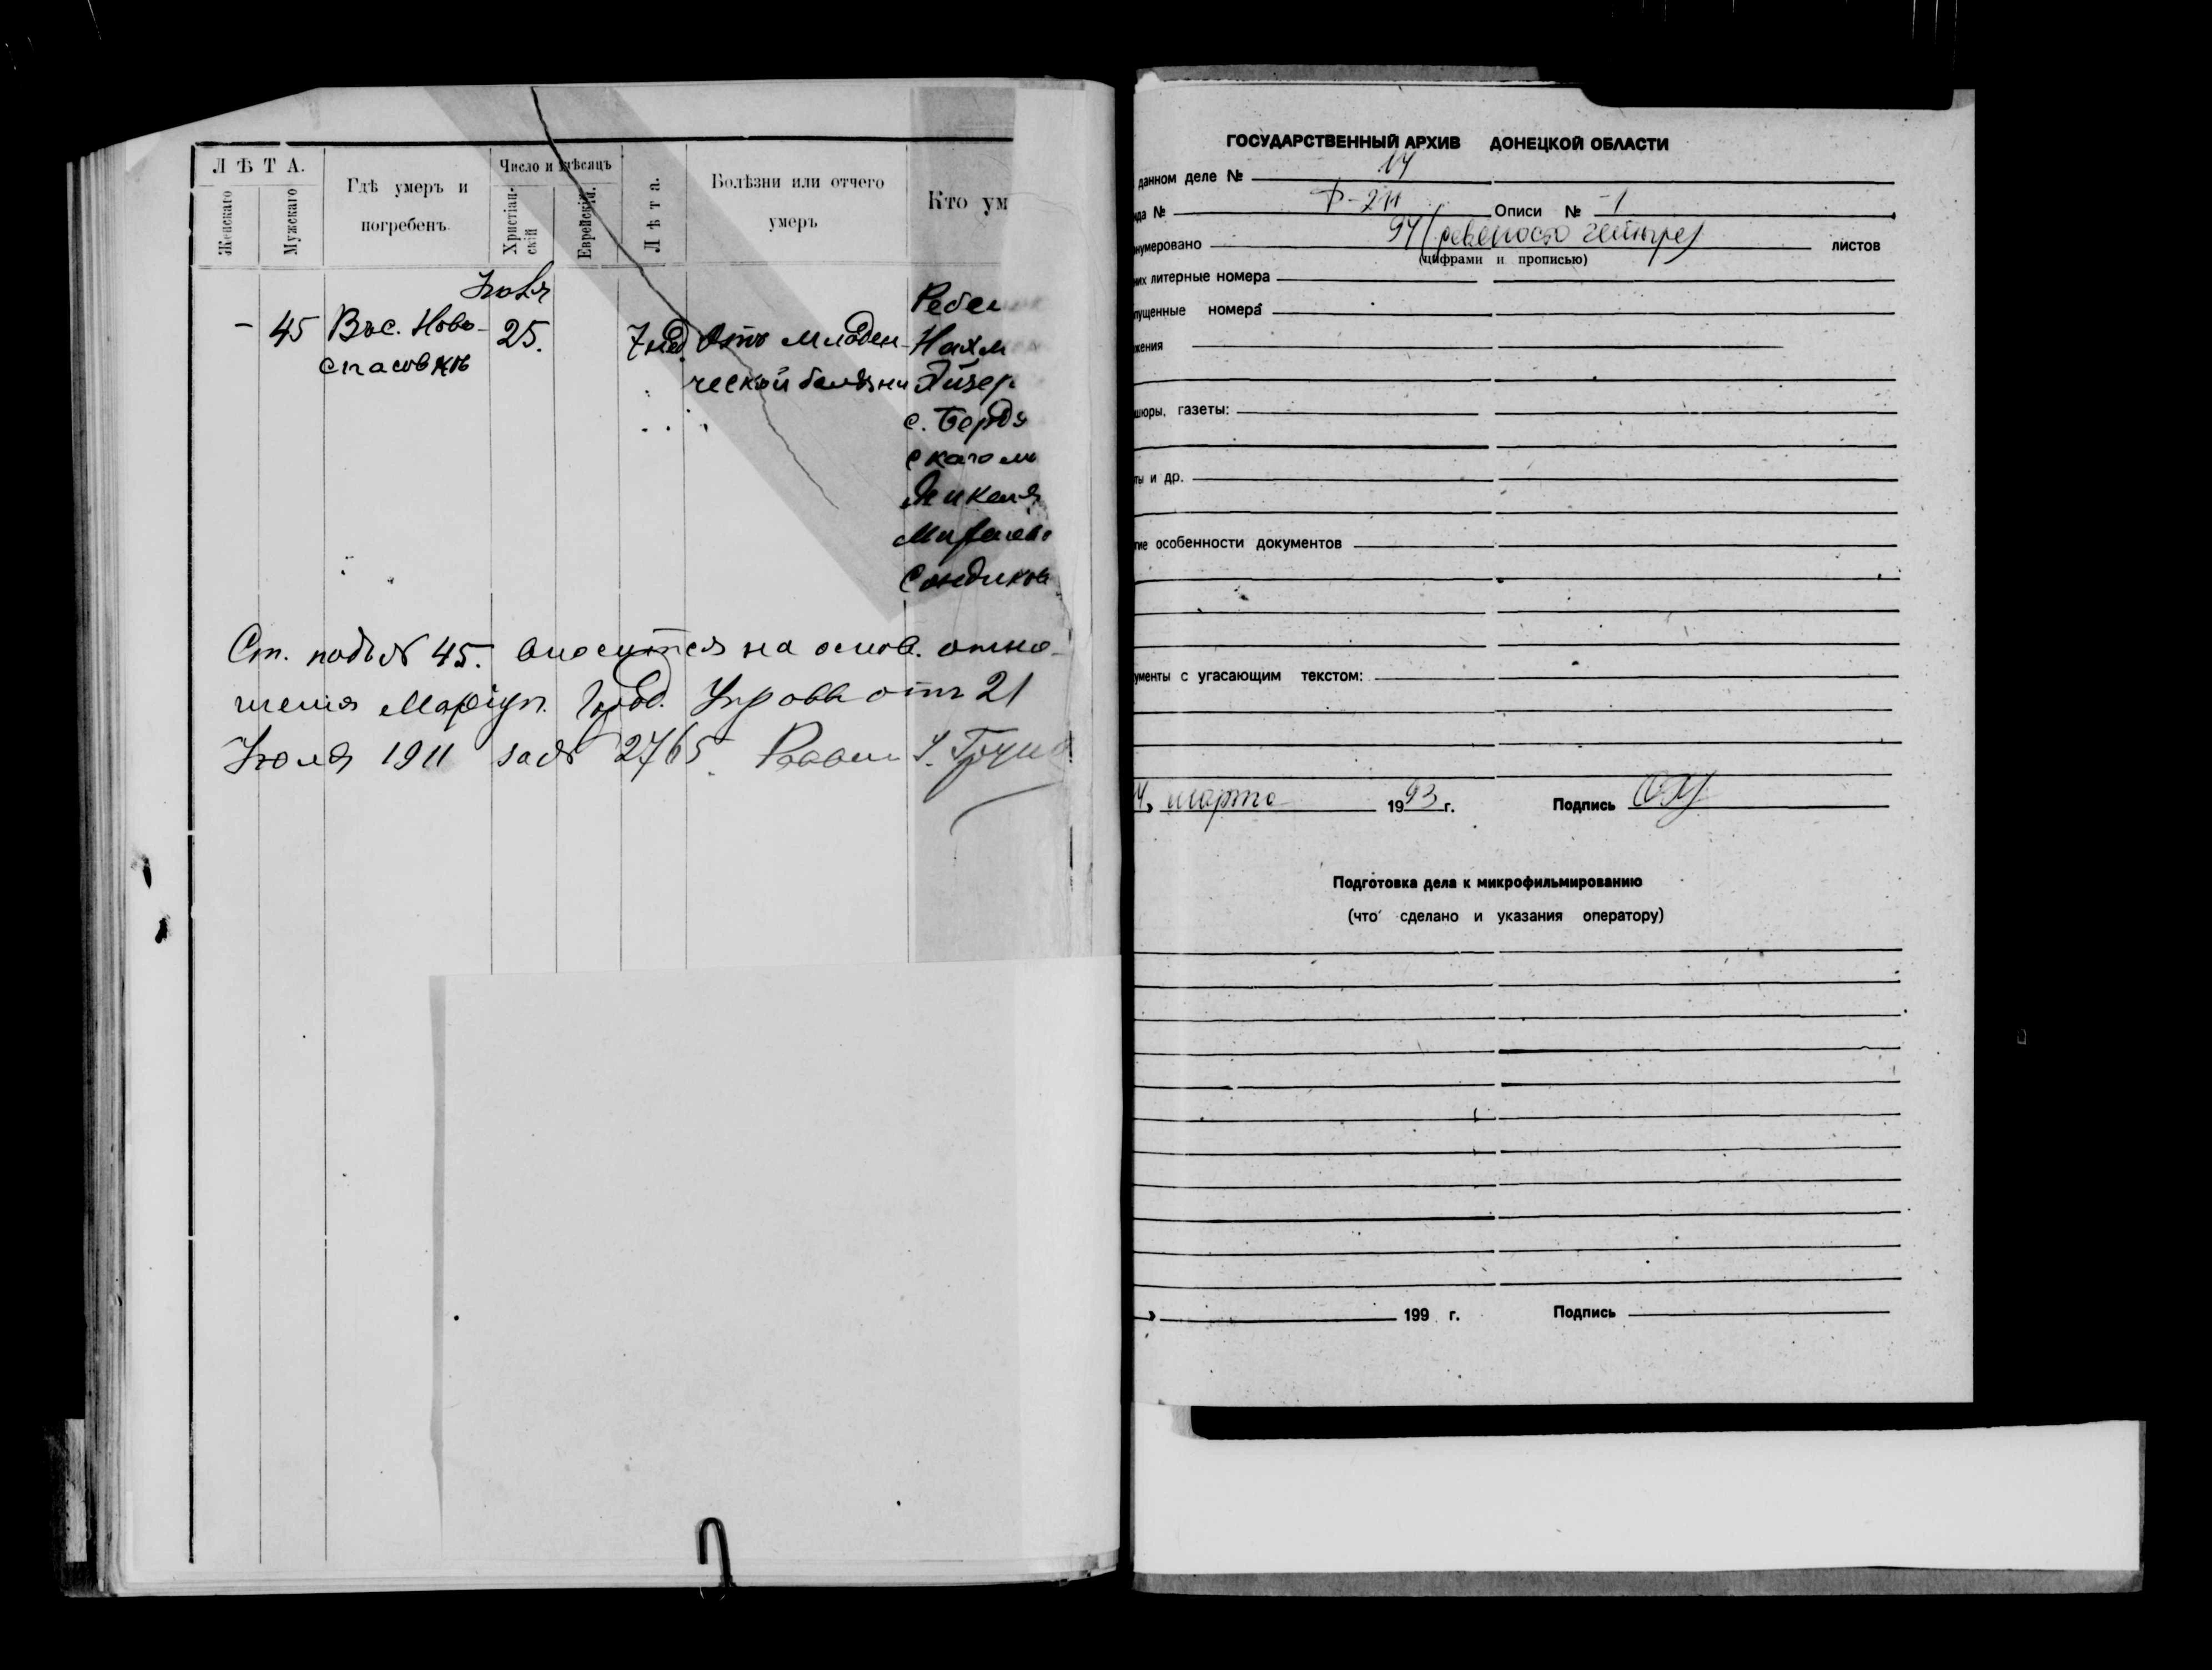 ЛѢТА.
Женскаго
Мужскаго
Гдѣ умеръ и
погребенъ.
Число и мѣсяцъ
Христіан-
скій
Еврейскій.
Лѣта.
Болѣзни или отчего
умеръ
Кто ум
Ребен
- 45 Въ с. Ново- 25. 7 нед Отъ младен- Нахм
спасовкѣ ческой болѣзни Лйзер
с. Бердя
скаго м
Сендикова
Ст. подъ № 45. вносится на основ. отно-
шенія Маріуп. Город. Управы отъ 21
Іюля 1911 за № 2765. Раввин
ГОСУДАРСТВЕННЫЙ АРХИВ ДОНЕЦКОЙ ОБЛАСТИ
данном деле № 14
да № Ф-211 Описи № 1
нумеровано 94 (девяносто четыре) листов
(цифрами и прописью)
их литерные номера
пущенные номера
жения
шюры, газеты:
ты и др.
гие особенности документов
ументы с угасающим текстом:
марта 1993 г. Подпись
Подготовка дела к микрофильмированию
(что сделано и указания оператору)
199 г. Подпись